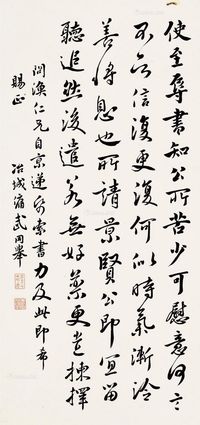 使至辱書知公所苦少可慰意何言
不信復更復何似時氣漸冷
善將息也所請景賢公即宜留
聽追然後遣若無好藥更揀擇
仁兄自京遞紙索書力及此即希
賜正
冶城武同舉